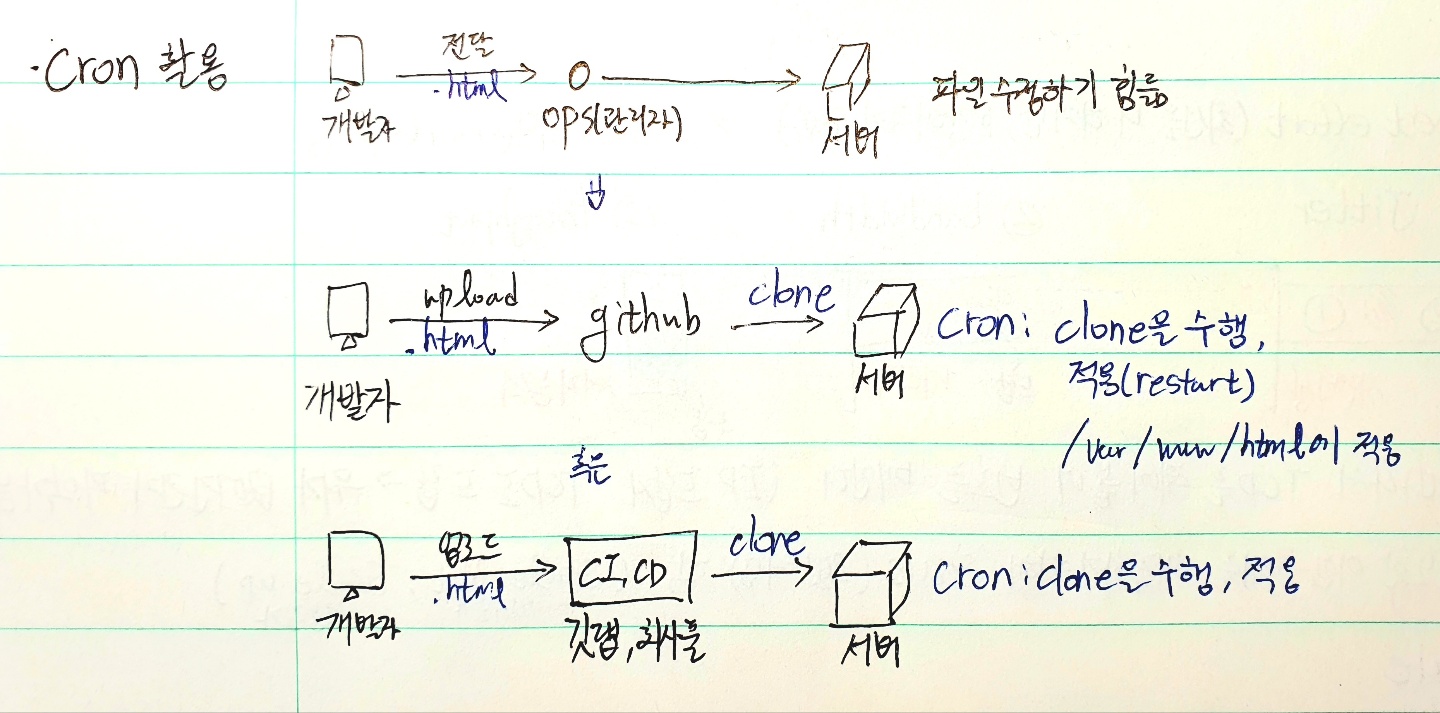 ·Cron 활용
전달
.html
개발자
OPS(관리자)
서버
파일 수정하기 힘듦
upload
.html
개발자
github
clone
서버
Cron: clone을 수행,
적용(restart)
/var/www/html에 적용
혹은
업로드
.html
개발자
CI, CD
깃랩, 회사툴
clone
서버
Cron: clone을 수행, 적용